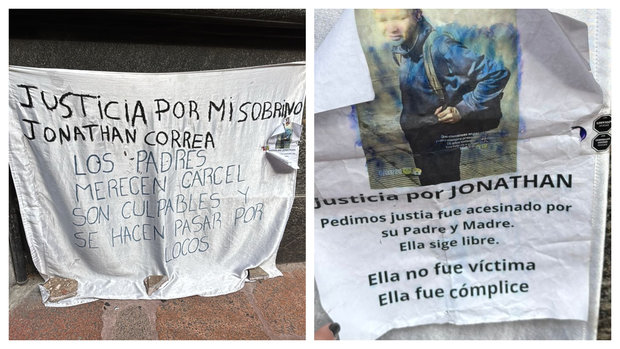 JUSTICIA POR MI SOBRINO
JONATHAN CORREA
LOS PADRES
MERECEN CARCEL
SON CULPABLES Y
SE HACEN PASAR POR
LOCOS
Justicia por JONATHAN
Pedimos justia fue acesinado por
su Padre y Madre.
Ella sige libre.
Ella no fue víctima
Ella fue cómplice